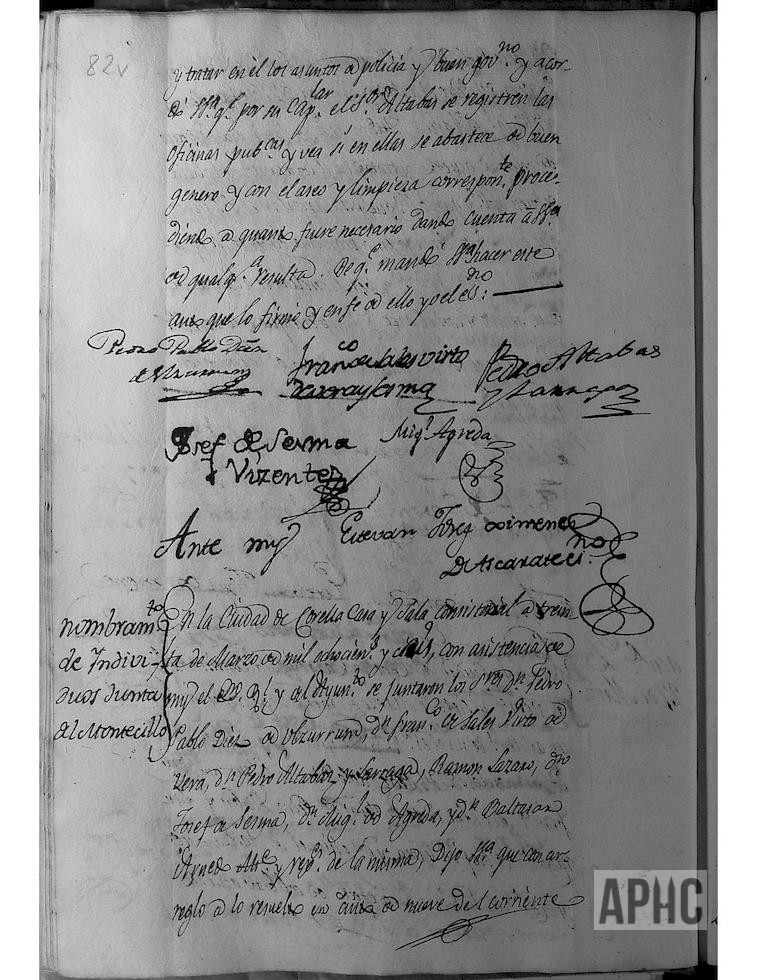 82v
y tratar en el los asuntos de policia y buen gov.no y acor-
dó S.Sa. q.e por su Cap.lar el S.or Altabás se registren las
oficinas pub.cas y vea si en ellas se abastece de buen
genero y con el aseo y limpieza correspon.te proce-
diendo a quanto fuere necesario dando cuenta a S.Sa
de qualq.a resulta. De q.e mandó S.Sa hacer este
auto que lo firmó y en fe de ello yo el es.no:
Pedro Pablo Diez
de Ulzurrun
Fran.co de Sales Virto
de Vera y
Pedro Altabas
y Larraga
Josef de Serma
y Vizente
Mig.l Agreda
Ante my Estevan Josef Ximenez
De Ascarate es.no
nombram.to
de Indivi-
duos Junta
del Montecillo
En la Ciudad de Corella Casa y Sala consistorial a trein
ta de Marzo de mil ochocien.s y seis, con asistencia de
my el es.no R.l y del Ayun.to se juntaron los S.res d.n Pedro
Pablo Diez de Ulzurrun, d.n Fran.co de Sales Virto de
Vera, d.n Pedro Altabas y Larraga, Ramon Lazaro, d.n
Josef de Serma, d.n Mig.l de Agreda, y d.n Baltasar
Alc.e y rejo.s de la misma, Dijo S.Sa que con ar-
reglo a lo resuelto en auto de nueve del corriente
APHC